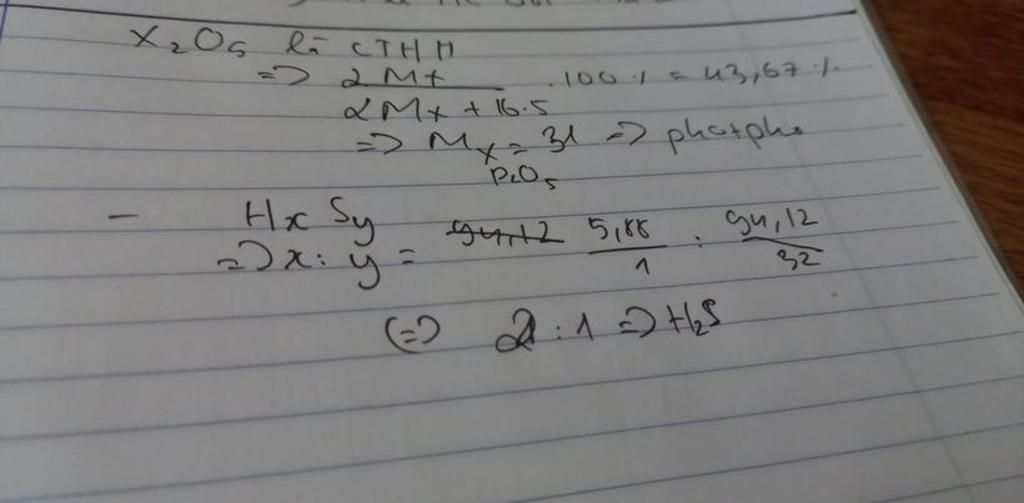 X₂O₅ là CTHH
=> 2Mx / 2Mx + 16.5 . 100% = 43,67%
=> Mx = 31 => photpho
P₂O₅
- HxSy
=> x : y = 5,88 / 1 : 94,12 / 32
<=> 2 : 1 => H₂S